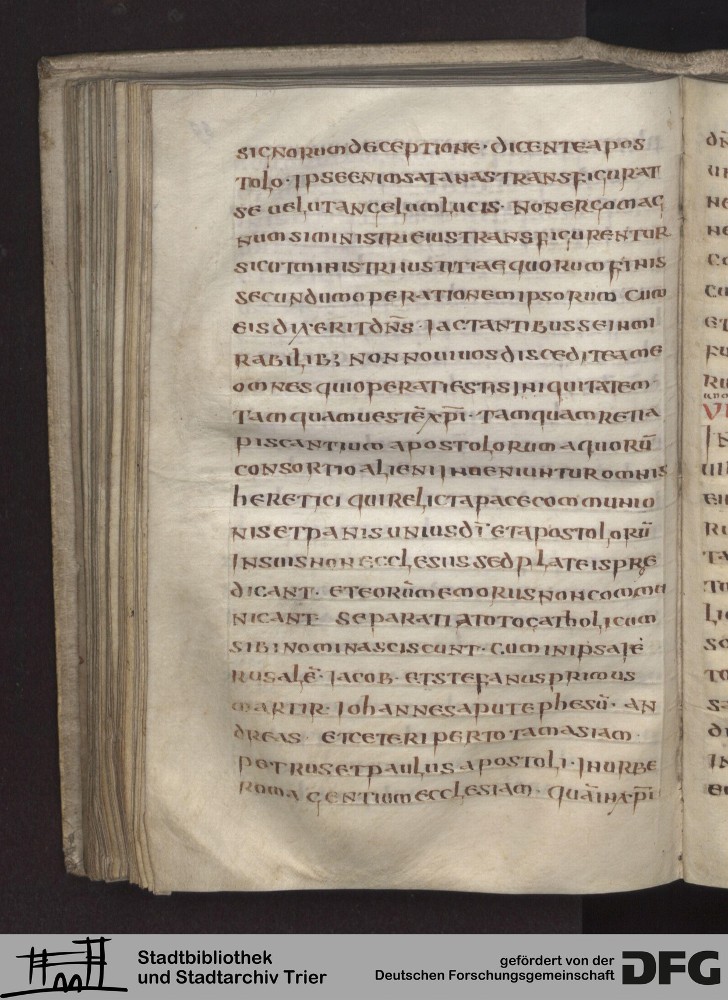 signorum deceptione · dicente apos
tolo · Ipse enim satanas transfigurat
se uelut angelum lucis · non ergo mag
num si ministri eius transfigurentur
sicut ministri iustitiae quorum finis
secundum operationem ipsorum cum
eis dixerit dn̄s · Iactantibus se in mi
rabilib; non noui uos discedite a me
omnes qui operati estis iniquitatem
tamquam ueste xp̄i · tamquam retia
piscantium apostolorum a quorū
consortio alieni Inueniuntur omnis
heretici qui relicta pace communio
nis et panis unius dī et apostolorū
In suis non ecclesiis sed plateis pre
dicant · et eorūm emorus non commu
nicant separati a toto catholicum
sibi nomin asciscunt · cum in ipsa ie
rusalē · Iacob · et stefanus primus
martir · Iohannes aput ephesū · an
dreas et ceteri per totam asiam
petrus et paulus apostoli · In urbe
roma gentium ecclesiam · quā in xp̄i
Stadtbibliothek
und Stadtarchiv Trier
gefördert von der
Deutschen Forschungsgemeinschaft
DFG